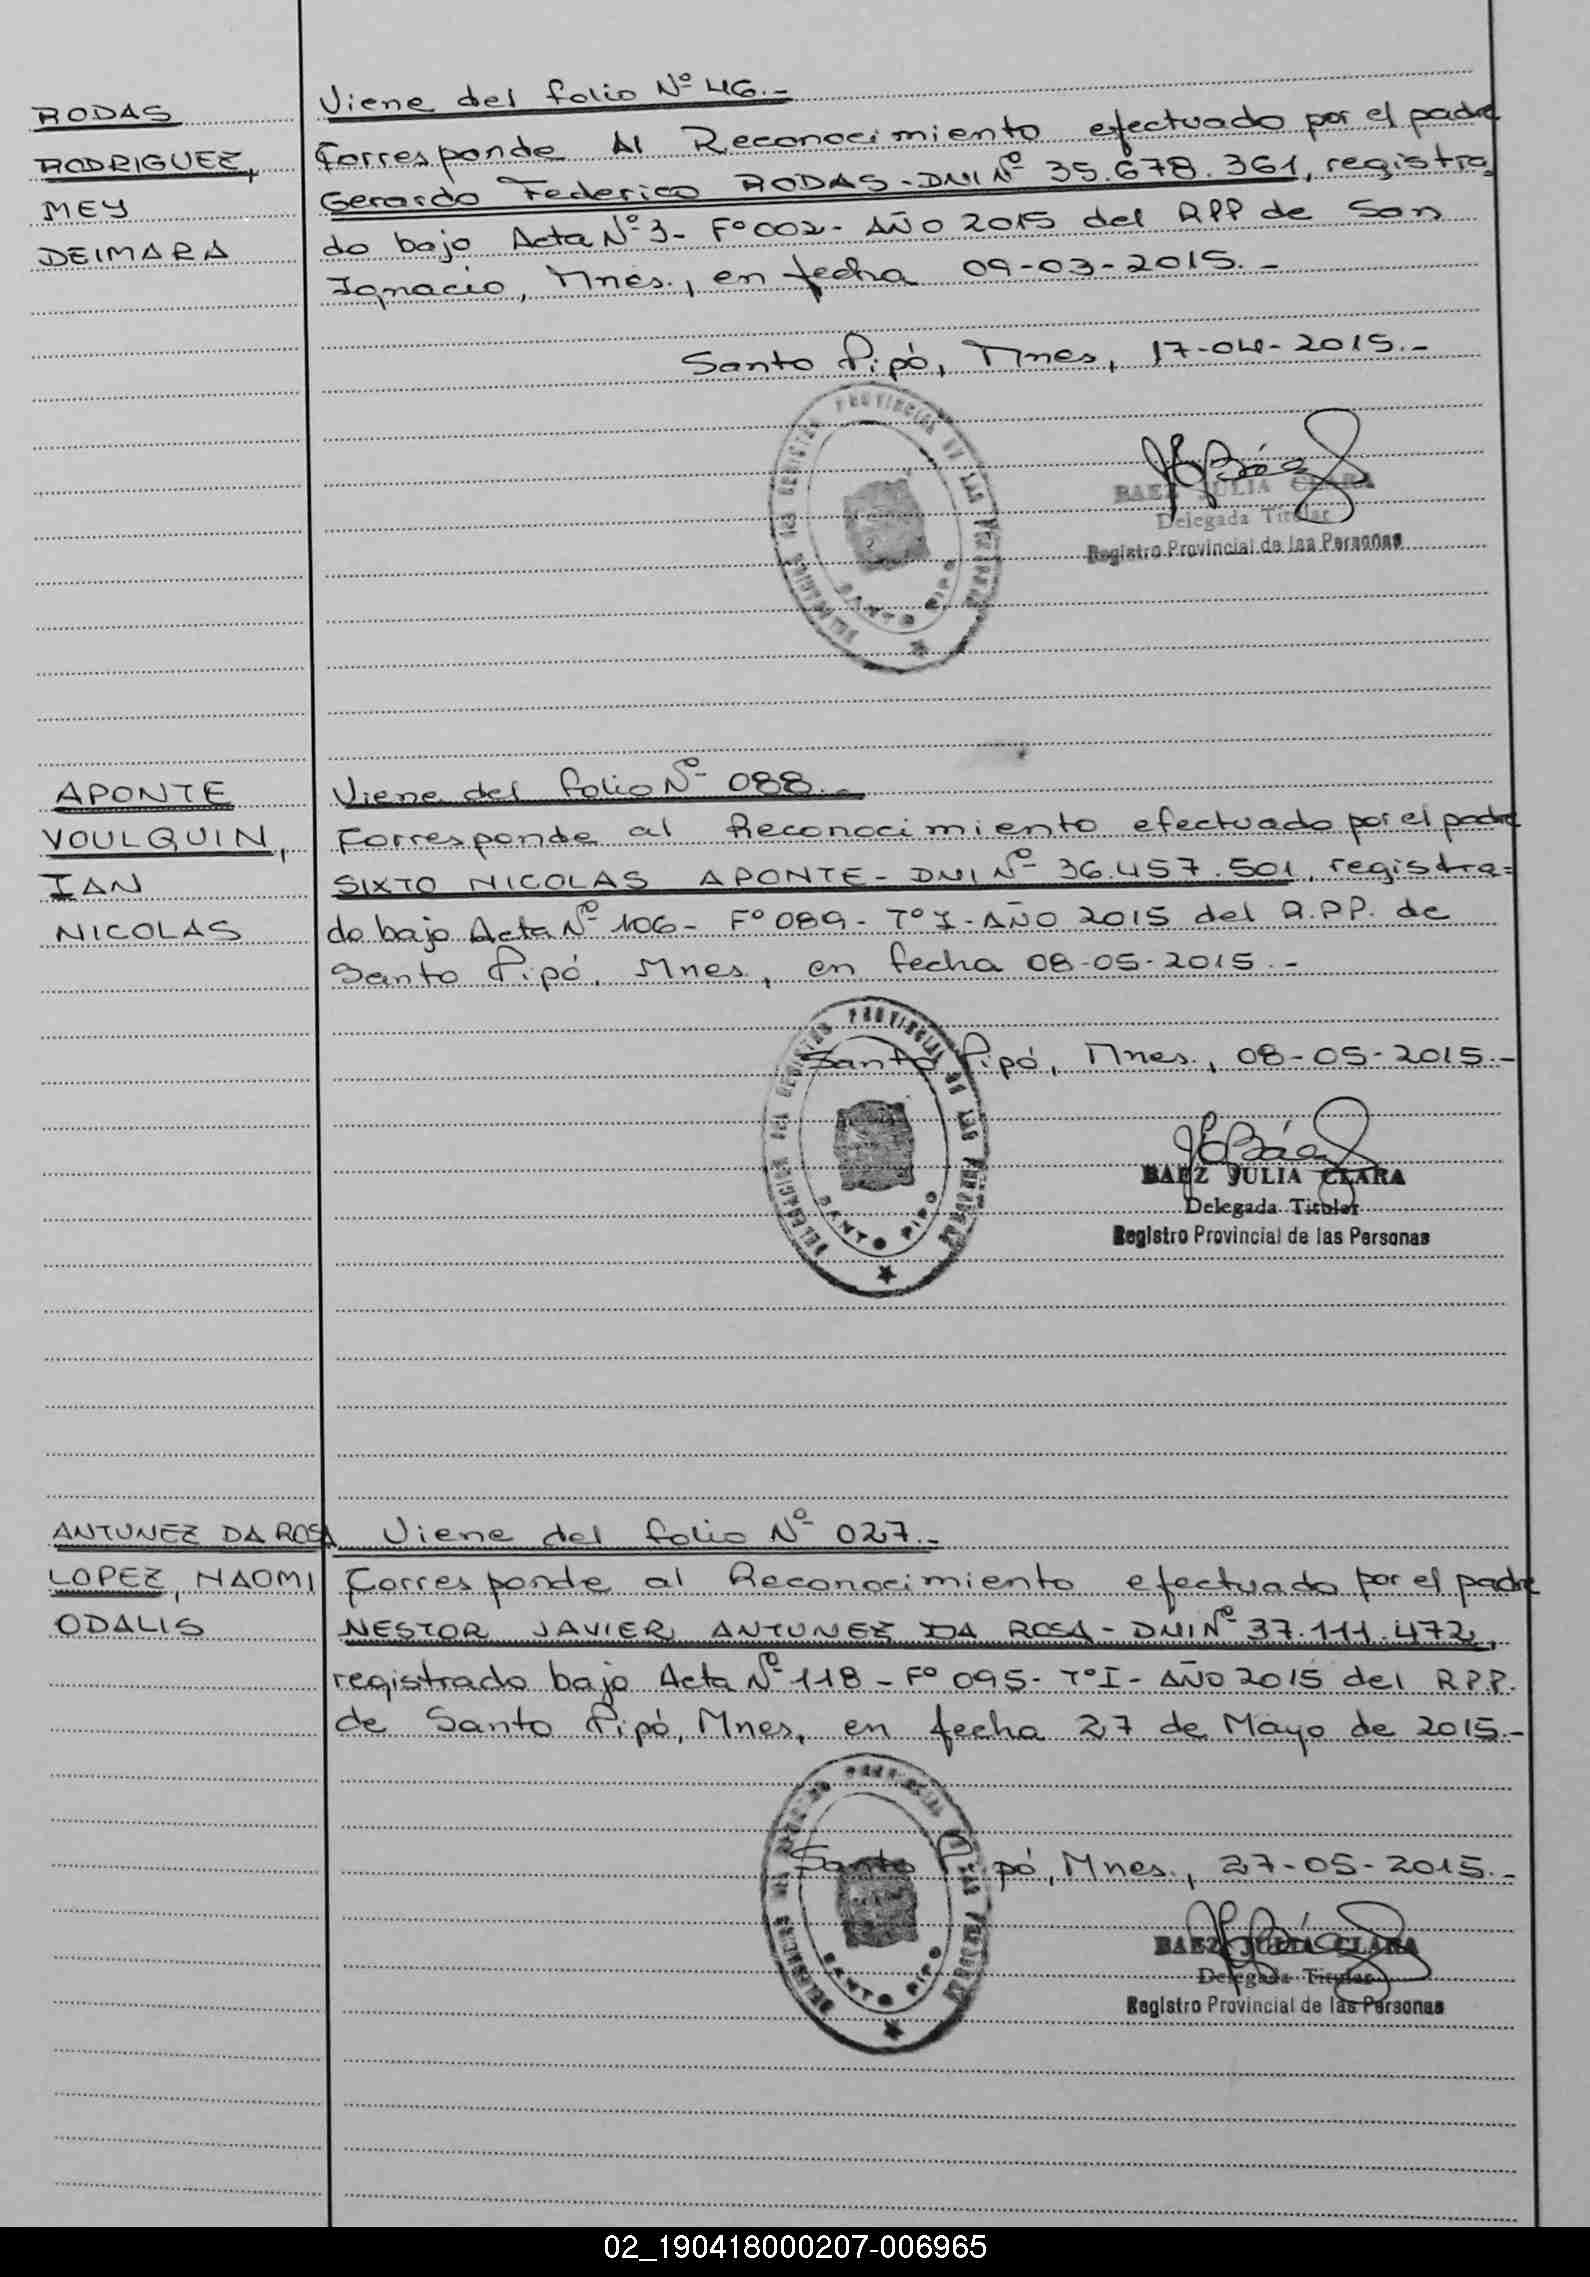 RODAS
RODRIGUEZ,
MEY
DEIMARA
Viene del folio Nº 46.-
Corresponde Al Reconocimiento efectuado por el padre
Gerardo Federico RODAS - DNI Nº 35.678.361, registra
do bajo Acta Nº 3 - Fº 002 - AÑO 2015 del RPP de San
Ignacio, Mnes., en fecha 09-03-2015.-
Santo Pipó, Mnes, 17-04-2015.-
DELEGACION DEL REGISTRO PROVINCIAL DE LAS PERSONAS
SANTO PIPO
BAEZ JULIA CLARA
Delegada Titular
Registro Provincial de las Personas
APONTE
VOULQUIN,
IAN
NICOLAS
Viene del folio Nº 088.-
Corresponde al Reconocimiento efectuado por el padre
SIXTO NICOLAS APONTE - DNI Nº 36.457.501, registra=
do bajo Acta Nº 106 - Fº 089 - Tº I - AÑO 2015 del R.P.P. de
Santo Pipó, Mnes., en fecha 08-05-2015.-
Santo Pipó, Mnes., 08-05-2015.-
DELEGACION DEL REGISTRO PROVINCIAL DE LAS PERSONAS
SANTO PIPO
BAEZ JULIA CLARA
Delegada Titular
Registro Provincial de las Personas
ANTUNEZ DA ROSA
LOPEZ, NAOMI
ODALIS
Viene del folio Nº 027.-
Corresponde al Reconocimiento efectuado por el padre
NESTOR JAVIER ANTUNEZ DA ROSA - DNI Nº 37.111.472,
registrado bajo Acta Nº 118 - Fº 095 - Tº I - AÑO 2015 del R.P.P.
de Santo Pipó, Mnes, en fecha 27 de Mayo de 2015.-
Santo Pipó, Mnes., 27-05-2015.-
DELEGACION DEL REGISTRO PROVINCIAL DE LAS PERSONAS
SANTO PIPO
BAEZ JULIA CLARA
Delegada Titular
Registro Provincial de las Personas
02_190418000207-006965